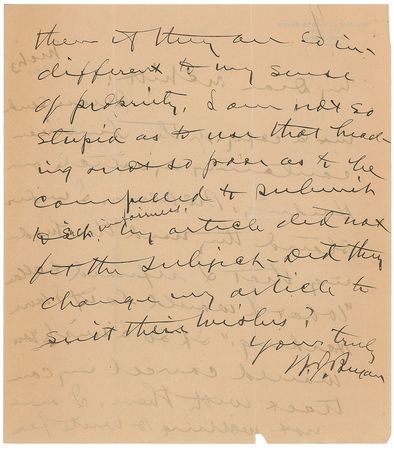 them if they are so in-
different to my sense
of propriety. I am not so
stupid as to use that head-
ing or not so poor as to be
compelled to submit
to such unfairness. My article did not
fit the subject - Did they
change my article to
suit their wishes?
Yours truly
W. J. Bryan